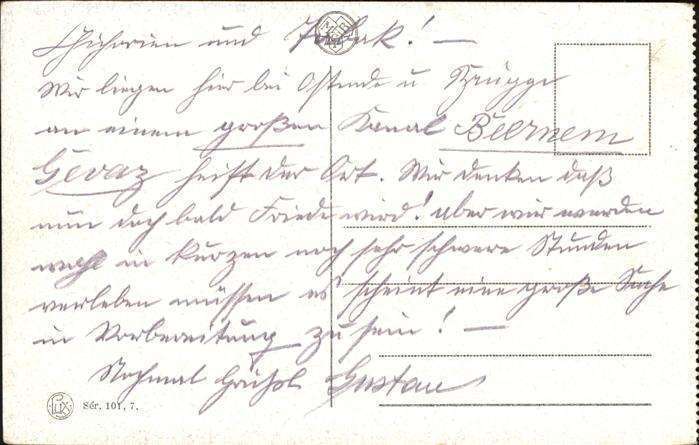 Zichorien und Tabak! —
Wir liegen hier bei Ostende u Brügge
an einem großen Kanal Beernem
Gevaz heißt der Ort. Wir denken daß
nun doch bald Friede wird! aber wir werden
wohl in kurzen noch sehr schwere Stunden
verleben müssen es scheint eine große Sache
in Vorbereitung zu sein! —
Nochmal Grüßt Gustav
LUX Sér. 101, 7.